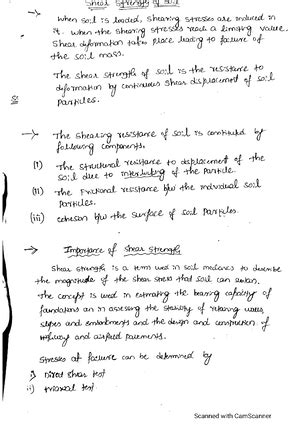 Shear Strength of Soil
→ When soil is loaded, shearing stresses are induced in
it. when the shearing stresses reach a limiting value,
Shear deformation takes place leading to failure of
the soil mass.
The shear strength of soil is the resistance to
deformation by continuous shear displacement of soil
Particles.
→ The Shearing resistance of soil is constituted by
following components.
(I) The Structural resistance to displacement of the
soil due to interlocking of the Particle.
(II) The Frictional resistance b/w the individual soil
Particles.
(iii) cohesion b/w the surface of soil Particles.
→ Importance of shear strength
Shear strength is a term used in soil mechanics to describe
the magnitude of the shear stress that soil can sustain.
The concept is used in estimating the bearing capacity of
foundations an in assessing the stability of retaining walls,
slopes and embankments and the design and construction of
Highway and airfield pavements.
Stresses at failure can be determined by
i) Direct shear test
ii) Triaxial test
Scanned with CamScanner